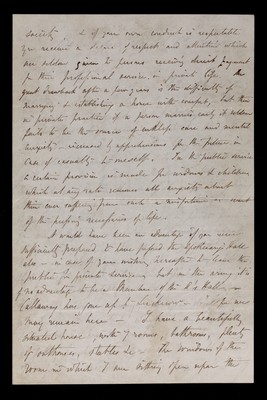 society, & if your own conduct is respectable
you receive a degree of respect and attention which
are seldom given to persons receiving direct payment
for their professional services in private life. the
great drawback after a few years is the difficulty of
marrying & establishing a home with comfort, but then
in private practice if a person marries early it seldom
fails to be the source of endless care and mental
anxiety - increased by apprehensions for the future in
case of casualty to oneself. In the public service
a certain provision is made for widows & children
which at any rate removes all anxiety about
their ever suffering from such a misfortune as want
of the necessaries of life.
I would have been an advantage if you were
sufficiently prepared to have passed the Apothecary's Hall
also - in case of your wishing hereafter to leave the
public for private service, but in the army it is
of no advantage to be a Member of the A. Hall.
Callaway has gone up to
may remain here - I have a beautifully
situated house, with 7 rooms, bathroom, plenty
of outhouses, stables &c - The windows of the
room in which I am sitting open upon the